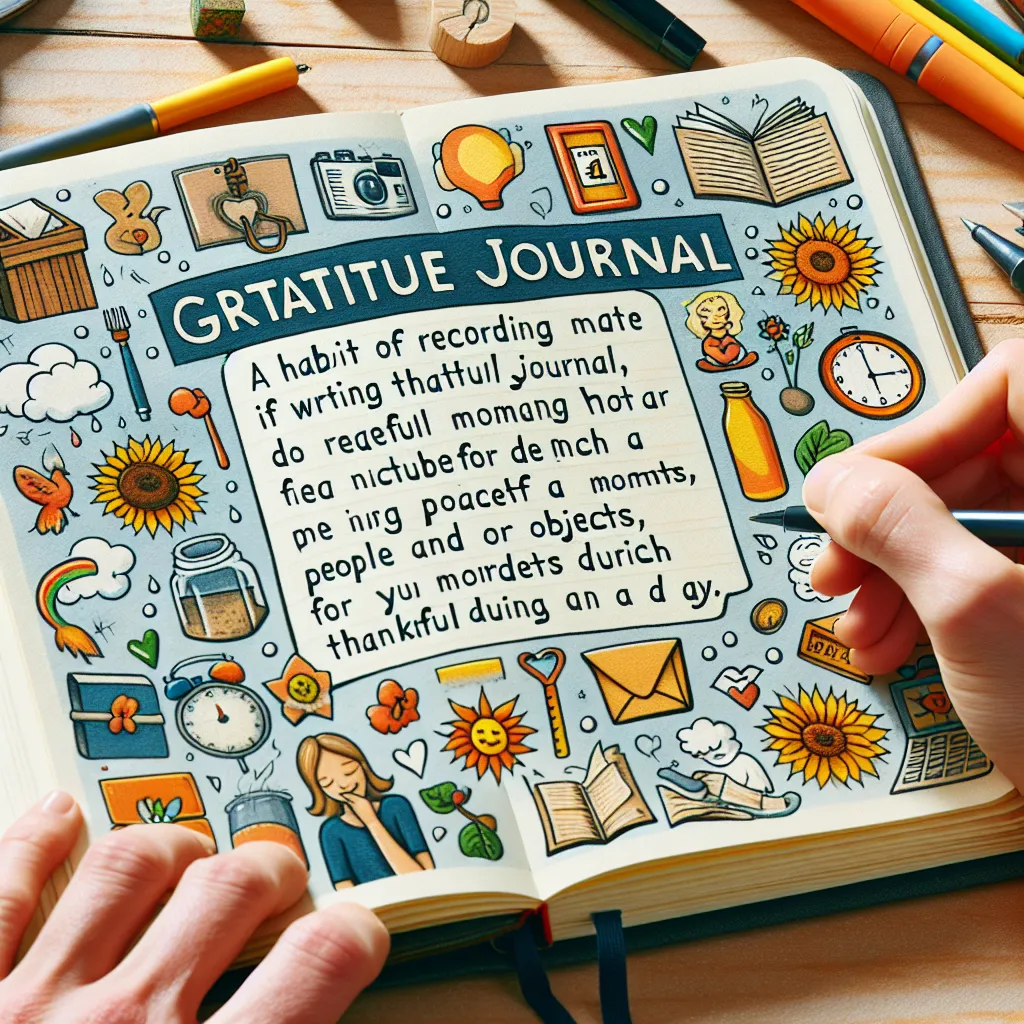 GRTATITUE JOURNAL
A habjit of recording mate
if wrting thattull journal,
do reaefull momang hot ar
fiea nictube for de mch a
me inrg poaceff a momnts,
people and or objects,
for yyu moırdets durich
thankful duing an a d ay.